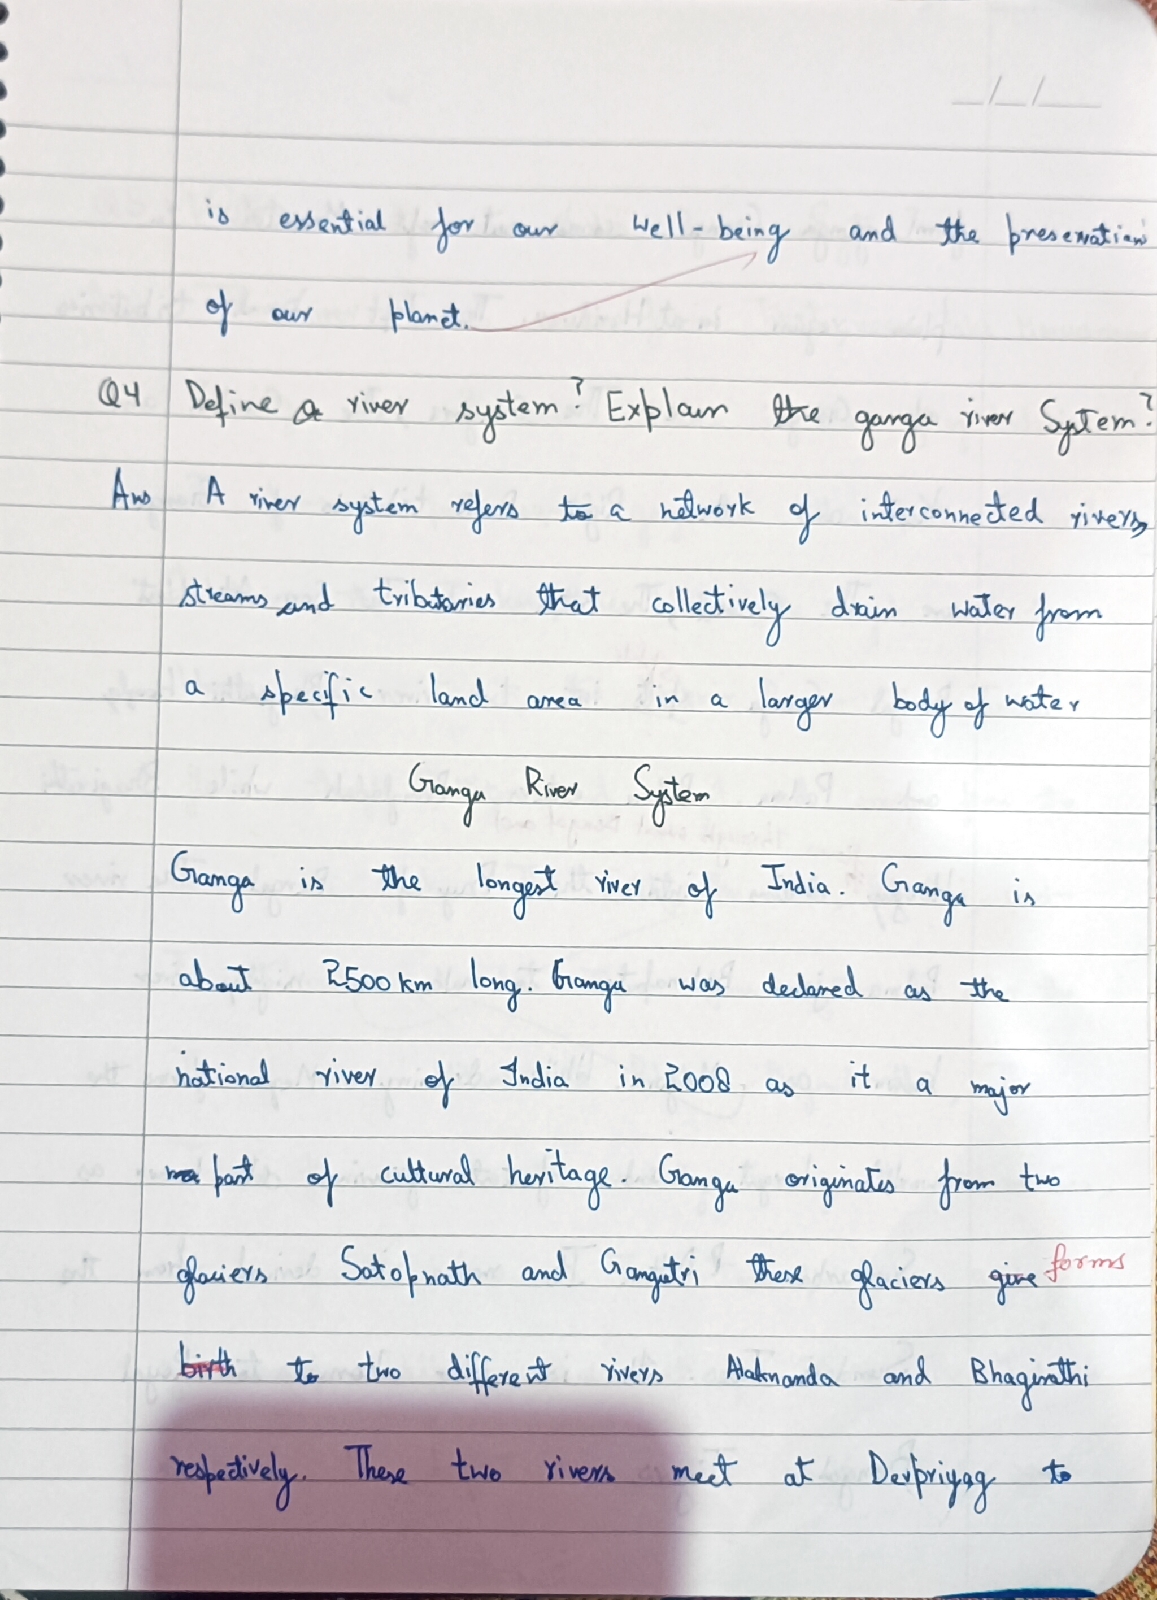 is essential for our well-being and the preservation
of our planet.
Q4 Define a river system? Explain the ganga river System?
Ans A river system refers to a network of interconnected rivers,
streams and tributaries that collectively drain water from
a specific land area in a larger body of water
Ganga River System
Ganga is the longest river of India. Ganga is
about 2500 km long. Ganga was declared as the
national river of India in 2008 as it a major
part of cultural heritage. Ganga originates from two
glaciers Satopnath and Gangotri these glaciers give forms
birth to two different rivers Alaknanda and Bhagirathi
respectively. These two rivers meet at Devpriyag to